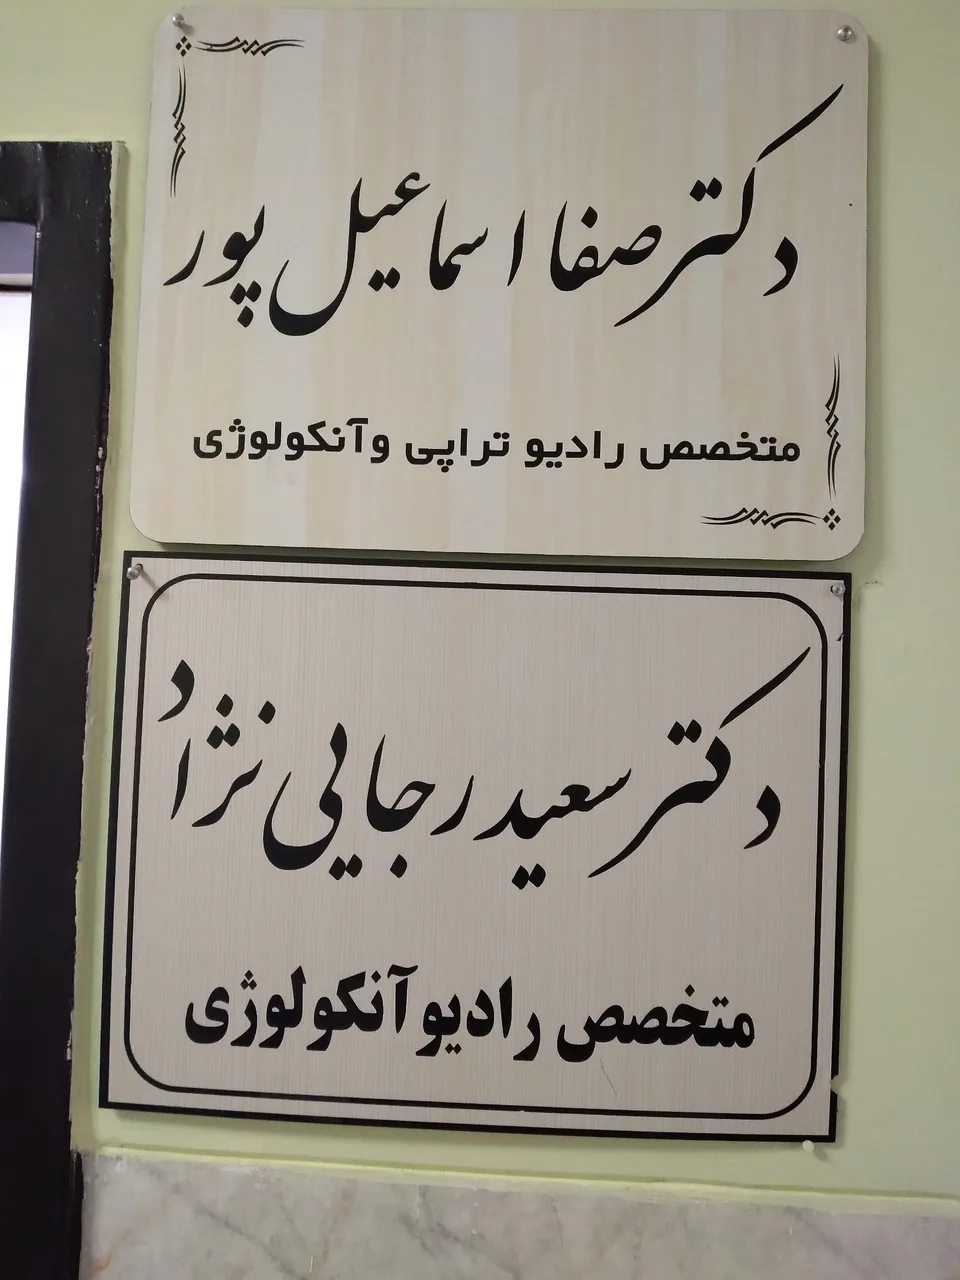 دکتر صفا اسماعیل پور
متخصص رادیو تراپی وآنکولوژی
دکتر سعید رجایی نژاد
متخصص رادیوآنکولوژی